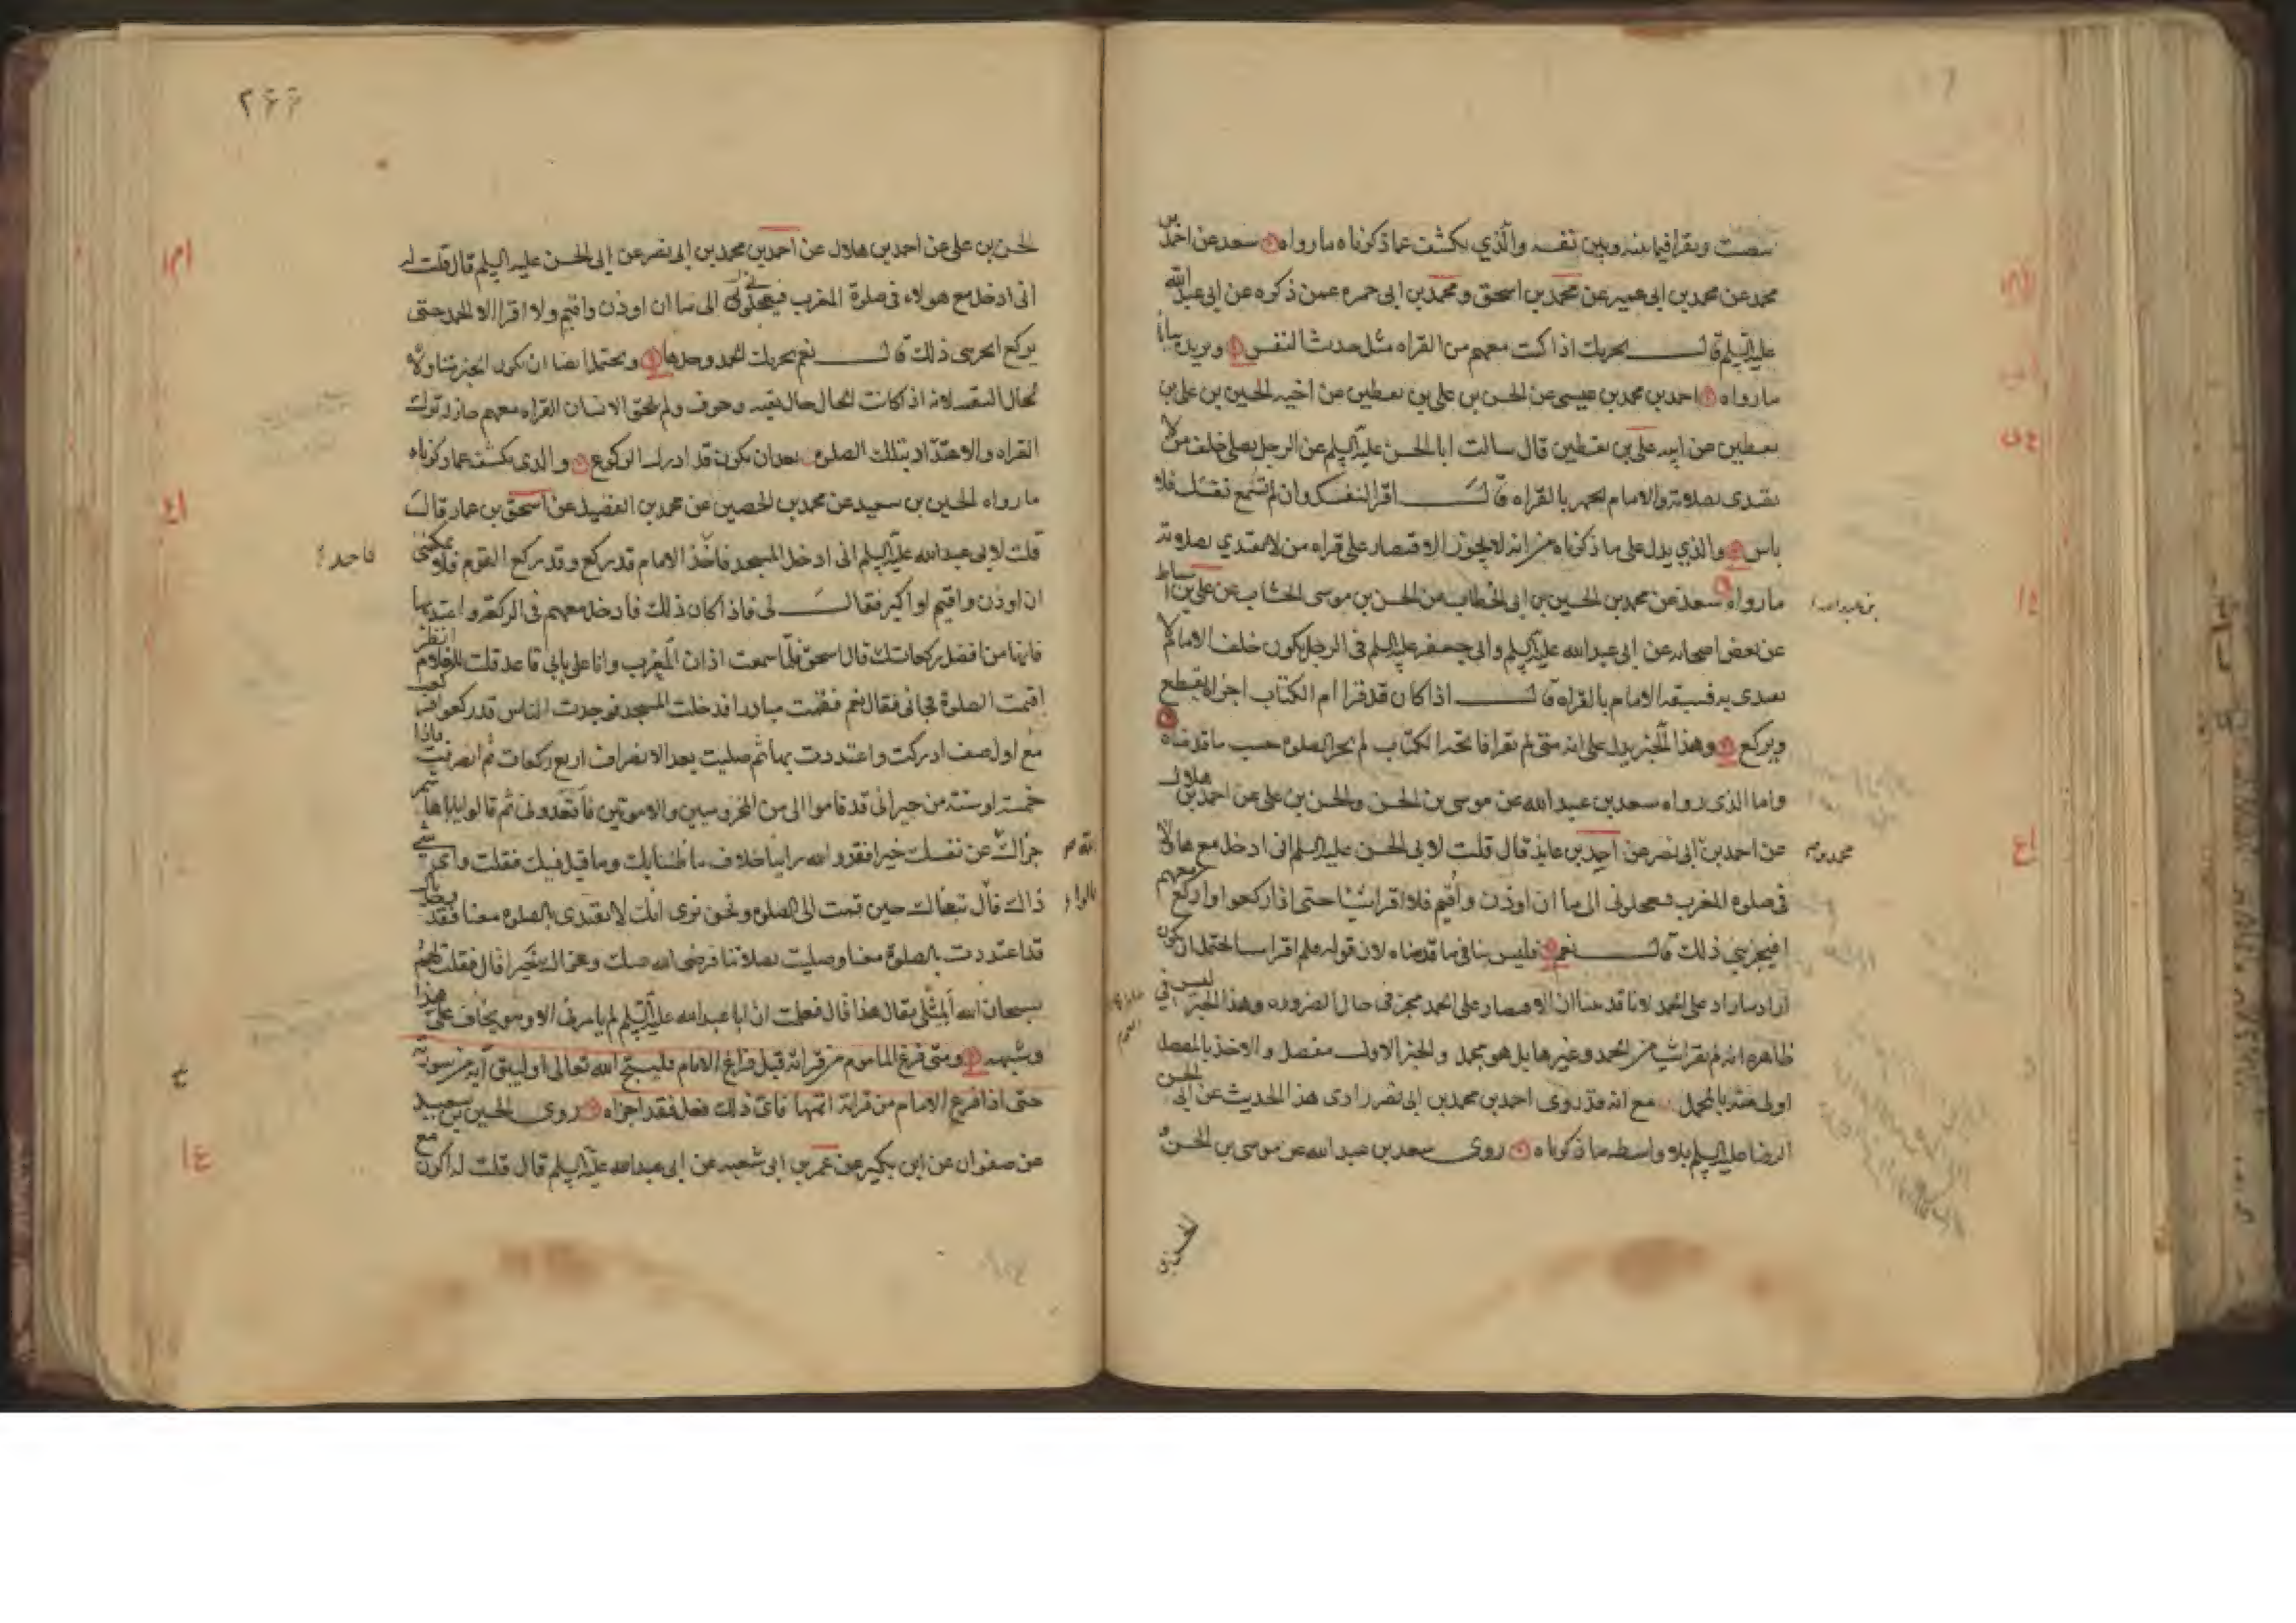 ينصت ويقرا فيما بينه وبين نفسه والذي يكشف عما ذكرناه ما رواه سعد عن احمد بن
محمد عن محمد بن ابي عمير عن محمد بن اسحق ومحمد بن ابي حمزه عمن ذكره عن ابي عبد الله
عليه السلم قال يجزيك اذا كنت معهم من القراه مثل حديث النفس ويزيده بيانا
ما رواه احمد بن محمد بن عيسى عن الحسن بن علي بن يقطين عن اخيه الحسين بن علي بن
يقطين عن ابيه علي بن يقطين قال سالت ابا الحسن عليه السلم عن الرجل يصلي خلف من لا
يقتدى بصلاته والامام يجهر بالقراه قال اقرا لنفسك وان لم تسمع نفسك فلا
باس والذي يدل على ما ذكرناه من انه لا يجوز الاقتصار على قراه من لا يقتدي بصلاته
ما رواه سعد عن محمد بن الحسين بن ابي الخطاب عن الحسن بن موسى الخشاب عن علي بن اسباط
عن بعض اصحابه عن ابي عبد الله عليه السلم وابي جعفر عليه السلم في الرجل يكون خلف الامام لا
يقتدى به فيسبقه الامام بالقراه قال اذا كان قد قرا ام الكتاب اجزاه يقطع
ويركع وهذا الخبر يدل على انه متى لم يقرا فاتحه الكتاب لم يجز الصلوه حسب ما قدمناه
واما الذي رواه سعد بن عبد الله عن موسى بن الحسن والحسن بن علي عن احمد بن هلال
عن احمد بن ابي نصر عن احمد بن عايذ قال قلت لابي الحسن عليه السلم اني ادخل مع هاولا
في صلوه المغرب فيعجلوني الى ما ان اوذن واقيم فلا اقرا شيا حتى اذا ركعوا واركع معهم
افيجزيني ذلك قال نعم فليس ينافي ما قدمناه لان قوله فلم اقرا شيا يحتمل ان يكون
اراد ما زاد على الحمد لانا قد بينا ان الاقتصار على الحمد مجز في حال الضروره وهذا الخبر ليس في
ظاهره انه لم يقرا شيا من الحمد وغيرها بل هو مجمل والخبر الاول مفصل والاخذ بالمفصل
اولى منه بالمجمل مع انه قد روى احمد بن محمد بن ابي نصر راوي هذا الحديث عن ابي الحسن
الرضا عليه السلم بلا واسطه ما ذكرناه روى سعد بن عبد الله عن موسى بن الحسن و
الحسن بن
محمد بن
۲۶۶
الحسن بن علي عن احمد بن هلال عن احمد بن محمد بن ابي نصر عن ابي الحسن عليه السلم قال قلت له
اني ادخل مع هولاء في صلوة المغرب فيعجلوني الى ما ان اوذن واقيم ولا اقرا الا الحمد حتى
يركع ايجزيني ذلك قال نعم يجزيك الحمد وحدها ويحتمل ايضا ان يكون الخبر متناولا
لحال التقيه لانه اذا كانت الحال حال تقيه وخوف ولم يلحق الانسان القراه معهم جاز له ترك
القراه والاعتداد بتلك الصلوه بعد ان يكون قد ادرك الركوع والذي يكشف عما ذكرناه
ما رواه الحسين بن سعيد عن محمد بن الحصين عن محمد بن الفضيل عن اسحق بن عمار قال
قلت لابي عبد الله عليه السلم اني ادخل المسجد فاجد الامام قد ركع وقد ركع القوم فلا يمكنني
ان اوذن واقيم او اكبر فقال لي فاذا كان ذلك فادخل معهم في الركعه واعتد بها
فانها من افضل ركعاتك قال اسحق فلما سمعت اذان المغرب وانا على بابي قاعد قلت للغلام انظر
اقيمت الصلوة فجاني فقال نعم فقمت مبادرا فدخلت المسجد فوجدت الناس قد ركعوا فركعت
مع اول صف ادركت واعتددت بها ثم صليت بعد الانصراف اربع ركعات ثم انصرفت فاذا
خمسة او ستة من جيراني قد قاموا الي من المخزوميين والامويين فاقعدوني ثم قالوا يا ابا هاشم
جزاك عن نفسك خيرا فقد والله راينا خلاف ما ظننا بك وما قيل فيك فقلت واي شي
ذاك قال تبعناك حين قمت الى الصلوه ونحن نرى انك لا تقتدي بالصلوه معنا فقد وجدناك
قد اعتددت بالصلوة معنا وصليت بصلاتنا فرضي الله عنك وجزاك خيرا قال فقلت لهم
سبحان الله المثلي يقال هذا قال فعلمت ان ابا عبد الله عليه السلم لم يامرني الا وهو يخاف علي هذا
وشبهه ومتى فرغ الماموم من قراته قبل فراغ الامام فليسبح الله تعالى او ليبق آية من سورته
حتى اذا فرغ الامام من قراته اتمها فاي ذلك فعل فقد اجزاه روى الحسين بن سعيد
عن صفوان عن ابن بكير عن عمر بن ابي شعبه عن ابي عبد الله عليه السلم قال قلت له اكون مع
فاجد